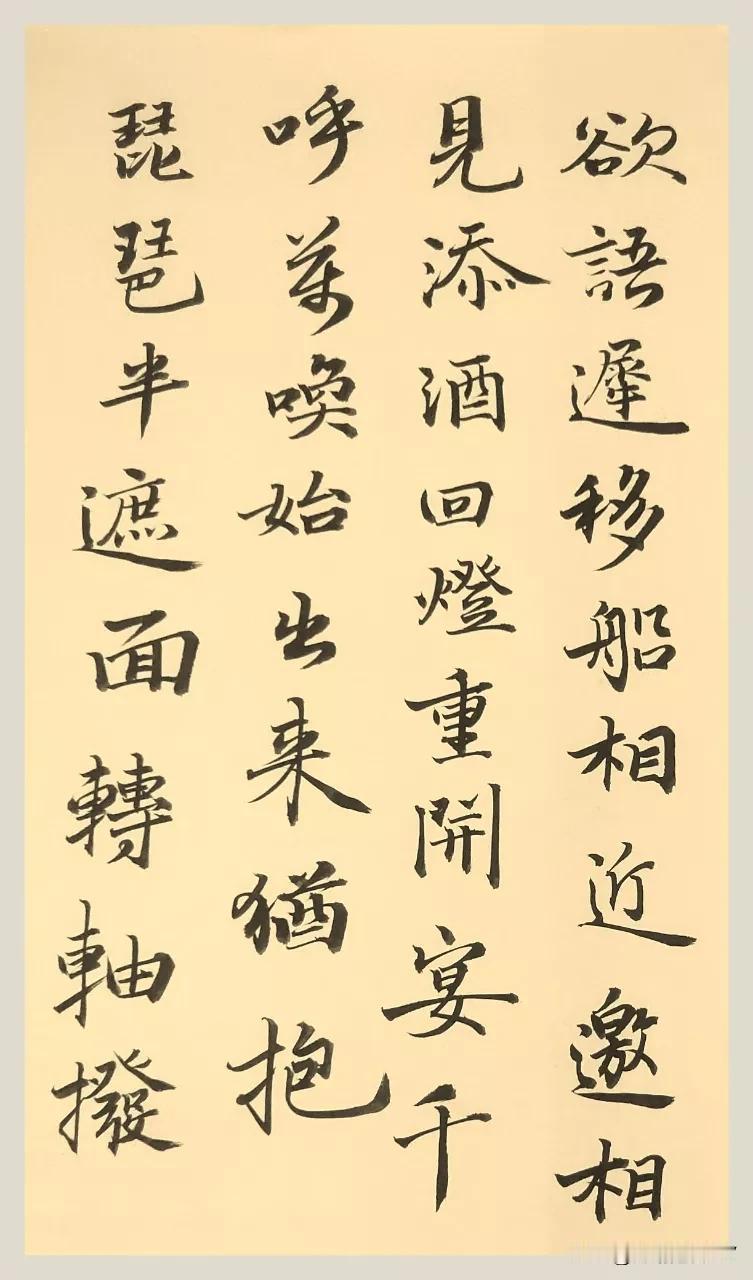 欲語遲移船相近邀相
見添酒回燈重開宴千
呼萬喚始出来猶抱
琵琶半遮面轉軸撥